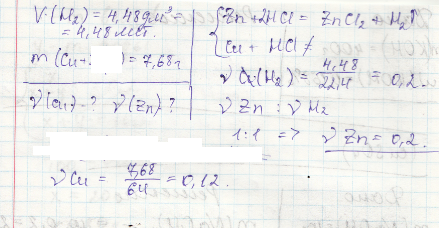 V(H₂) = 4,48 дм³ =
= 4,48 лит.
m(Cu+ ) = 7,68 г
ν(Cu) - ? ν(Zn) - ?
{ Zn + 2HCl = ZnCl₂ + H₂↑
Cu + HCl ≠
(H₂) = 4,48/22,4 = 0,2.
ν Zn : ν H₂
1:1 => ν Zn = 0,2.
ν Cu = 7,68/64 = 0,12.